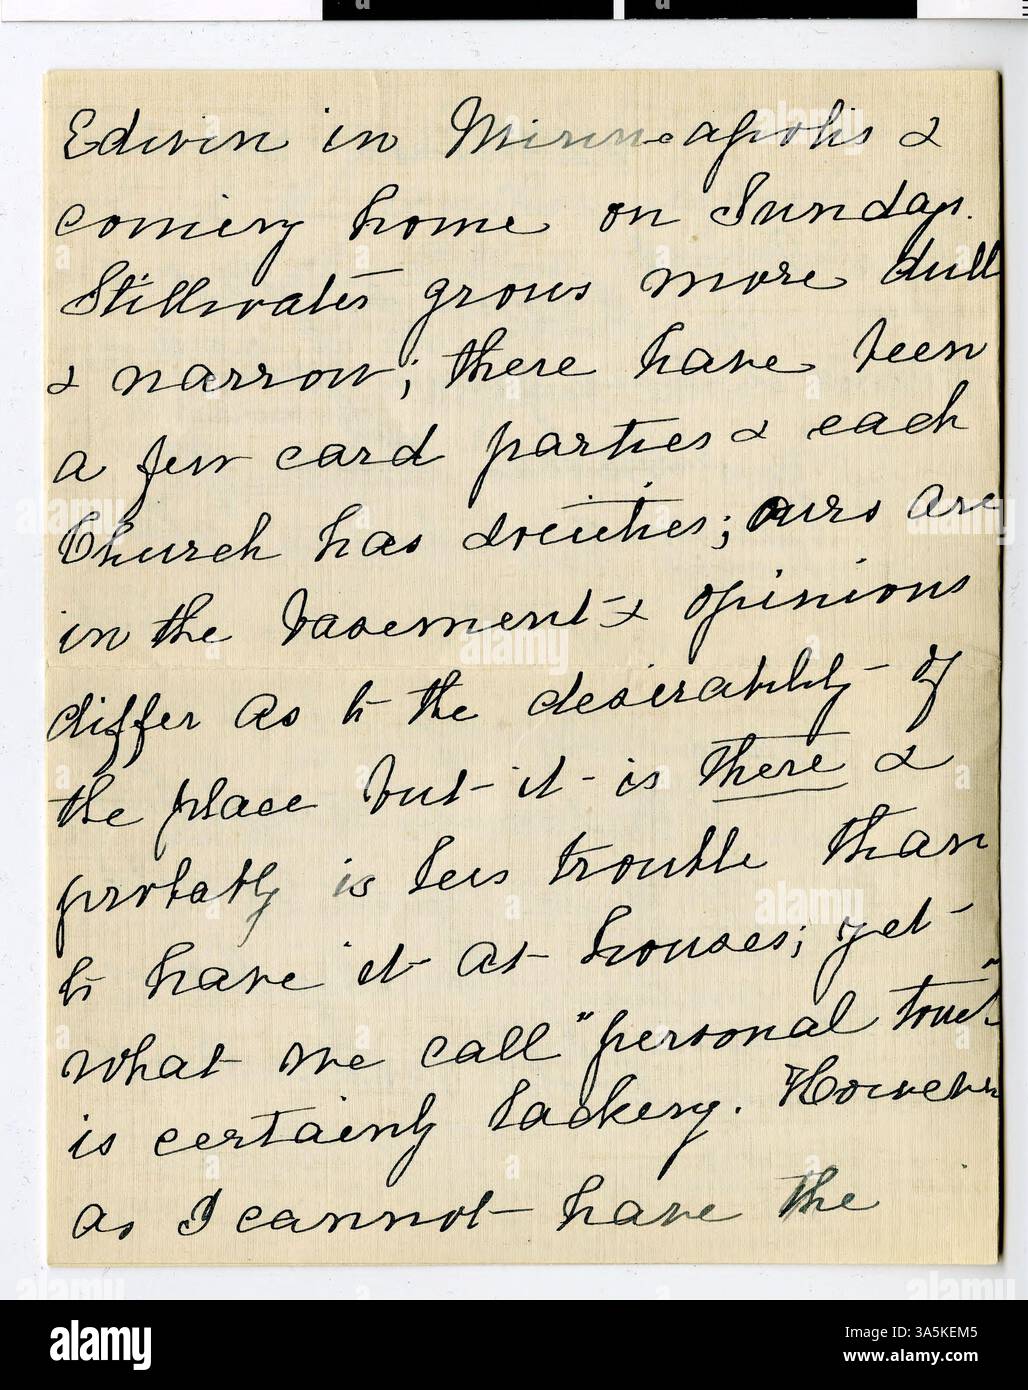 Edwin in Minneapolis &
coming home on Sunday.
Stillwater grows more dull
& narrow; there have been
a few card parties & each
Church has societies; ours are
in the basement & opinions
differ as to the desirability of
the place but it is there &
probably is less trouble than
to have it at houses; yet
what we call "personal touch"
is certainly lacking. However
as I cannot have the
alamy
Image ID: A5KEM5
www.alamy.com